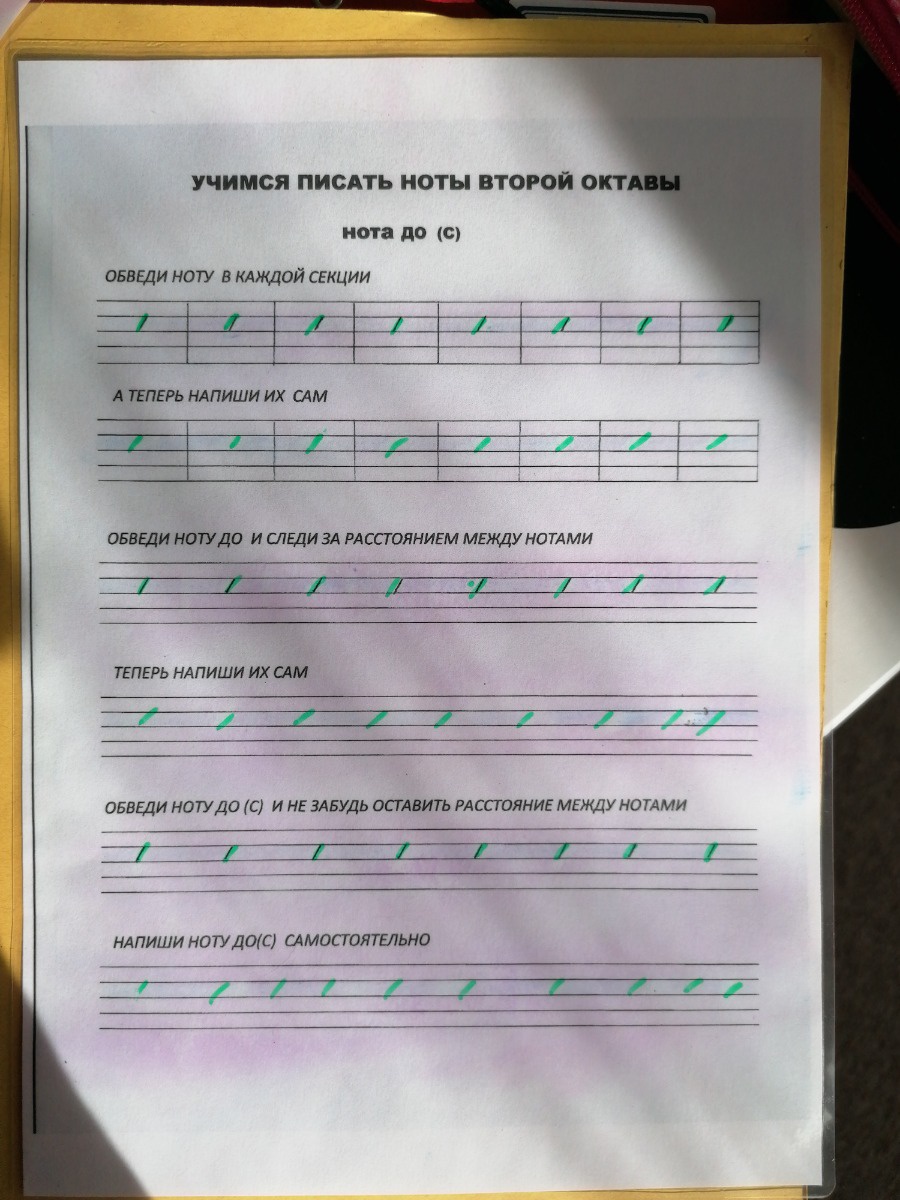 УЧИМСЯ ПИСАТЬ НОТЫ ВТОРОЙ ОКТАВЫ
нота до (с)
ОБВЕДИ НОТУ В КАЖДОЙ СЕКЦИИ
А ТЕПЕРЬ НАПИШИ ИХ САМ
ОБВЕДИ НОТУ ДО И СЛЕДИ ЗА РАССТОЯНИЕМ МЕЖДУ НОТАМИ
ТЕПЕРЬ НАПИШИ ИХ САМ
ОБВЕДИ НОТУ ДО (С) И НЕ ЗАБУДЬ ОСТАВИТЬ РАССТОЯНИЕ МЕЖДУ НОТАМИ
НАПИШИ НОТУ ДО(С) САМОСТОЯТЕЛЬНО